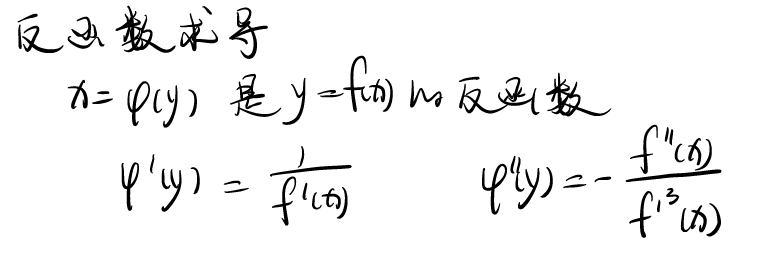 反函数求导
x=φ(y) 是 y=f(x) 的反函数
φ'(y) = 1/f'(x)    φ''(y) = - f''(x)/f'³(x)